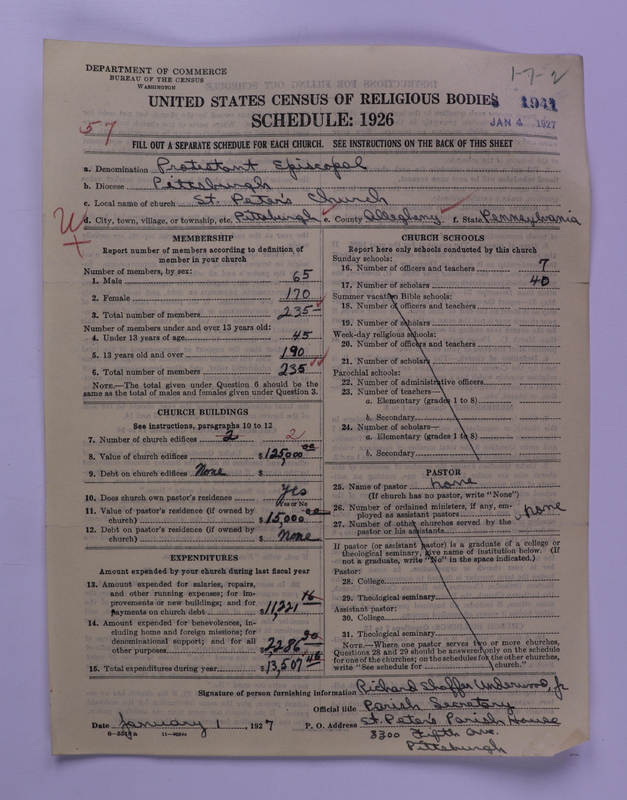 DEPARTMENT OF COMMERCE
BUREAU OF THE CENSUS
WASHINGTON
1-7-2
UNITED STATES CENSUS OF RELIGIOUS BODIES 1941
SCHEDULE: 1926
JAN 4 1927
57
FILL OUT A SEPARATE SCHEDULE FOR EACH CHURCH. SEE INSTRUCTIONS ON THE BACK OF THIS SHEET
a. Denomination Protestant Episcopal
b. Diocese Pittsburgh
c. Local name of church St. Peter's Church
d. City, town, village, or township, etc. Pittsburgh e. County Allegheny f. State Pennsylvania
MEMBERSHIP
Report number of members according to definition of
member in your church
Number of members, by sex:
1. Male 65
2. Female 170
3. Total number of members 235
Number of members under and over 13 years old:
4. Under 13 years of age 45
5. 13 years old and over 190
6. Total number of members 235
NOTE.—The total given under Question 6 should be
same as the total of males and females given under Question 3.
CHURCH BUILDINGS
See instructions, paragraphs 10 to 12
7. Number of church edifices 2 2
8. Value of church edifices $125,000 00
9. Debt on church edifices None $
10. Does church own pastor's residence Yes
Yes or No
11. Value of pastor's residence (if owned by
church) $15,000 00
12. Debt on pastor's residence (if owned by
church) $ None
EXPENDITURES
Amount expended by your church during last fiscal year
13. Amount expended for salaries, repairs,
and other running expenses; for im-
provements or new buildings; and for
payments on church debt $11,221 16
14. Amount expended for benevolences, in-
cluding home and foreign missions; for
denominational support; and for all
other purposes $2,286 30
15. Total expenditures during year $13,507 46
CHURCH SCHOOLS
Report here only schools conducted by this church
Sunday schools:
16. Number of officers and teachers 7
17. Number of scholars 40
Summer vacation Bible schools:
18. Number of officers and teachers
19. Number of scholars
Week-day religious schools:
20. Number of officers and teachers
21. Number of scholars
Parochial schools:
22. Number of administrative officers
23. Number of teachers—
a. Elementary (grades 1 to 8)
b. Secondary
24. Number of scholars—
a. Elementary (grades 1 to 8)
b. Secondary
PASTOR
25. Name of pastor none
(If church has no pastor, write "None")
26. Number of ordained ministers, if any, em-
ployed as assistant pastors none
27. Number of other churches served by the
pastor or his assistants
If pastor (or assistant pastor) is a graduate of a college or
theological seminary, give name of institution below. (If
not a graduate, write "No" in the space indicated.)
Pastor:
28. College
29. Theological seminary
Assistant pastor:
30. College
31. Theological seminary
NOTE.—Where one pastor serves two or more churches,
Questions 28 and 29 should be answered only on the schedule
for one of the churches; on the schedules for the other churches,
write "See schedule for church."
Signature of person furnishing information Richard Shaffer Underwood, Jr
Official title Parish Secretary
Date January 1, 1927 P. O. Address St. Peter's Parish House
3300 Fifth Ave.
Pittsburgh